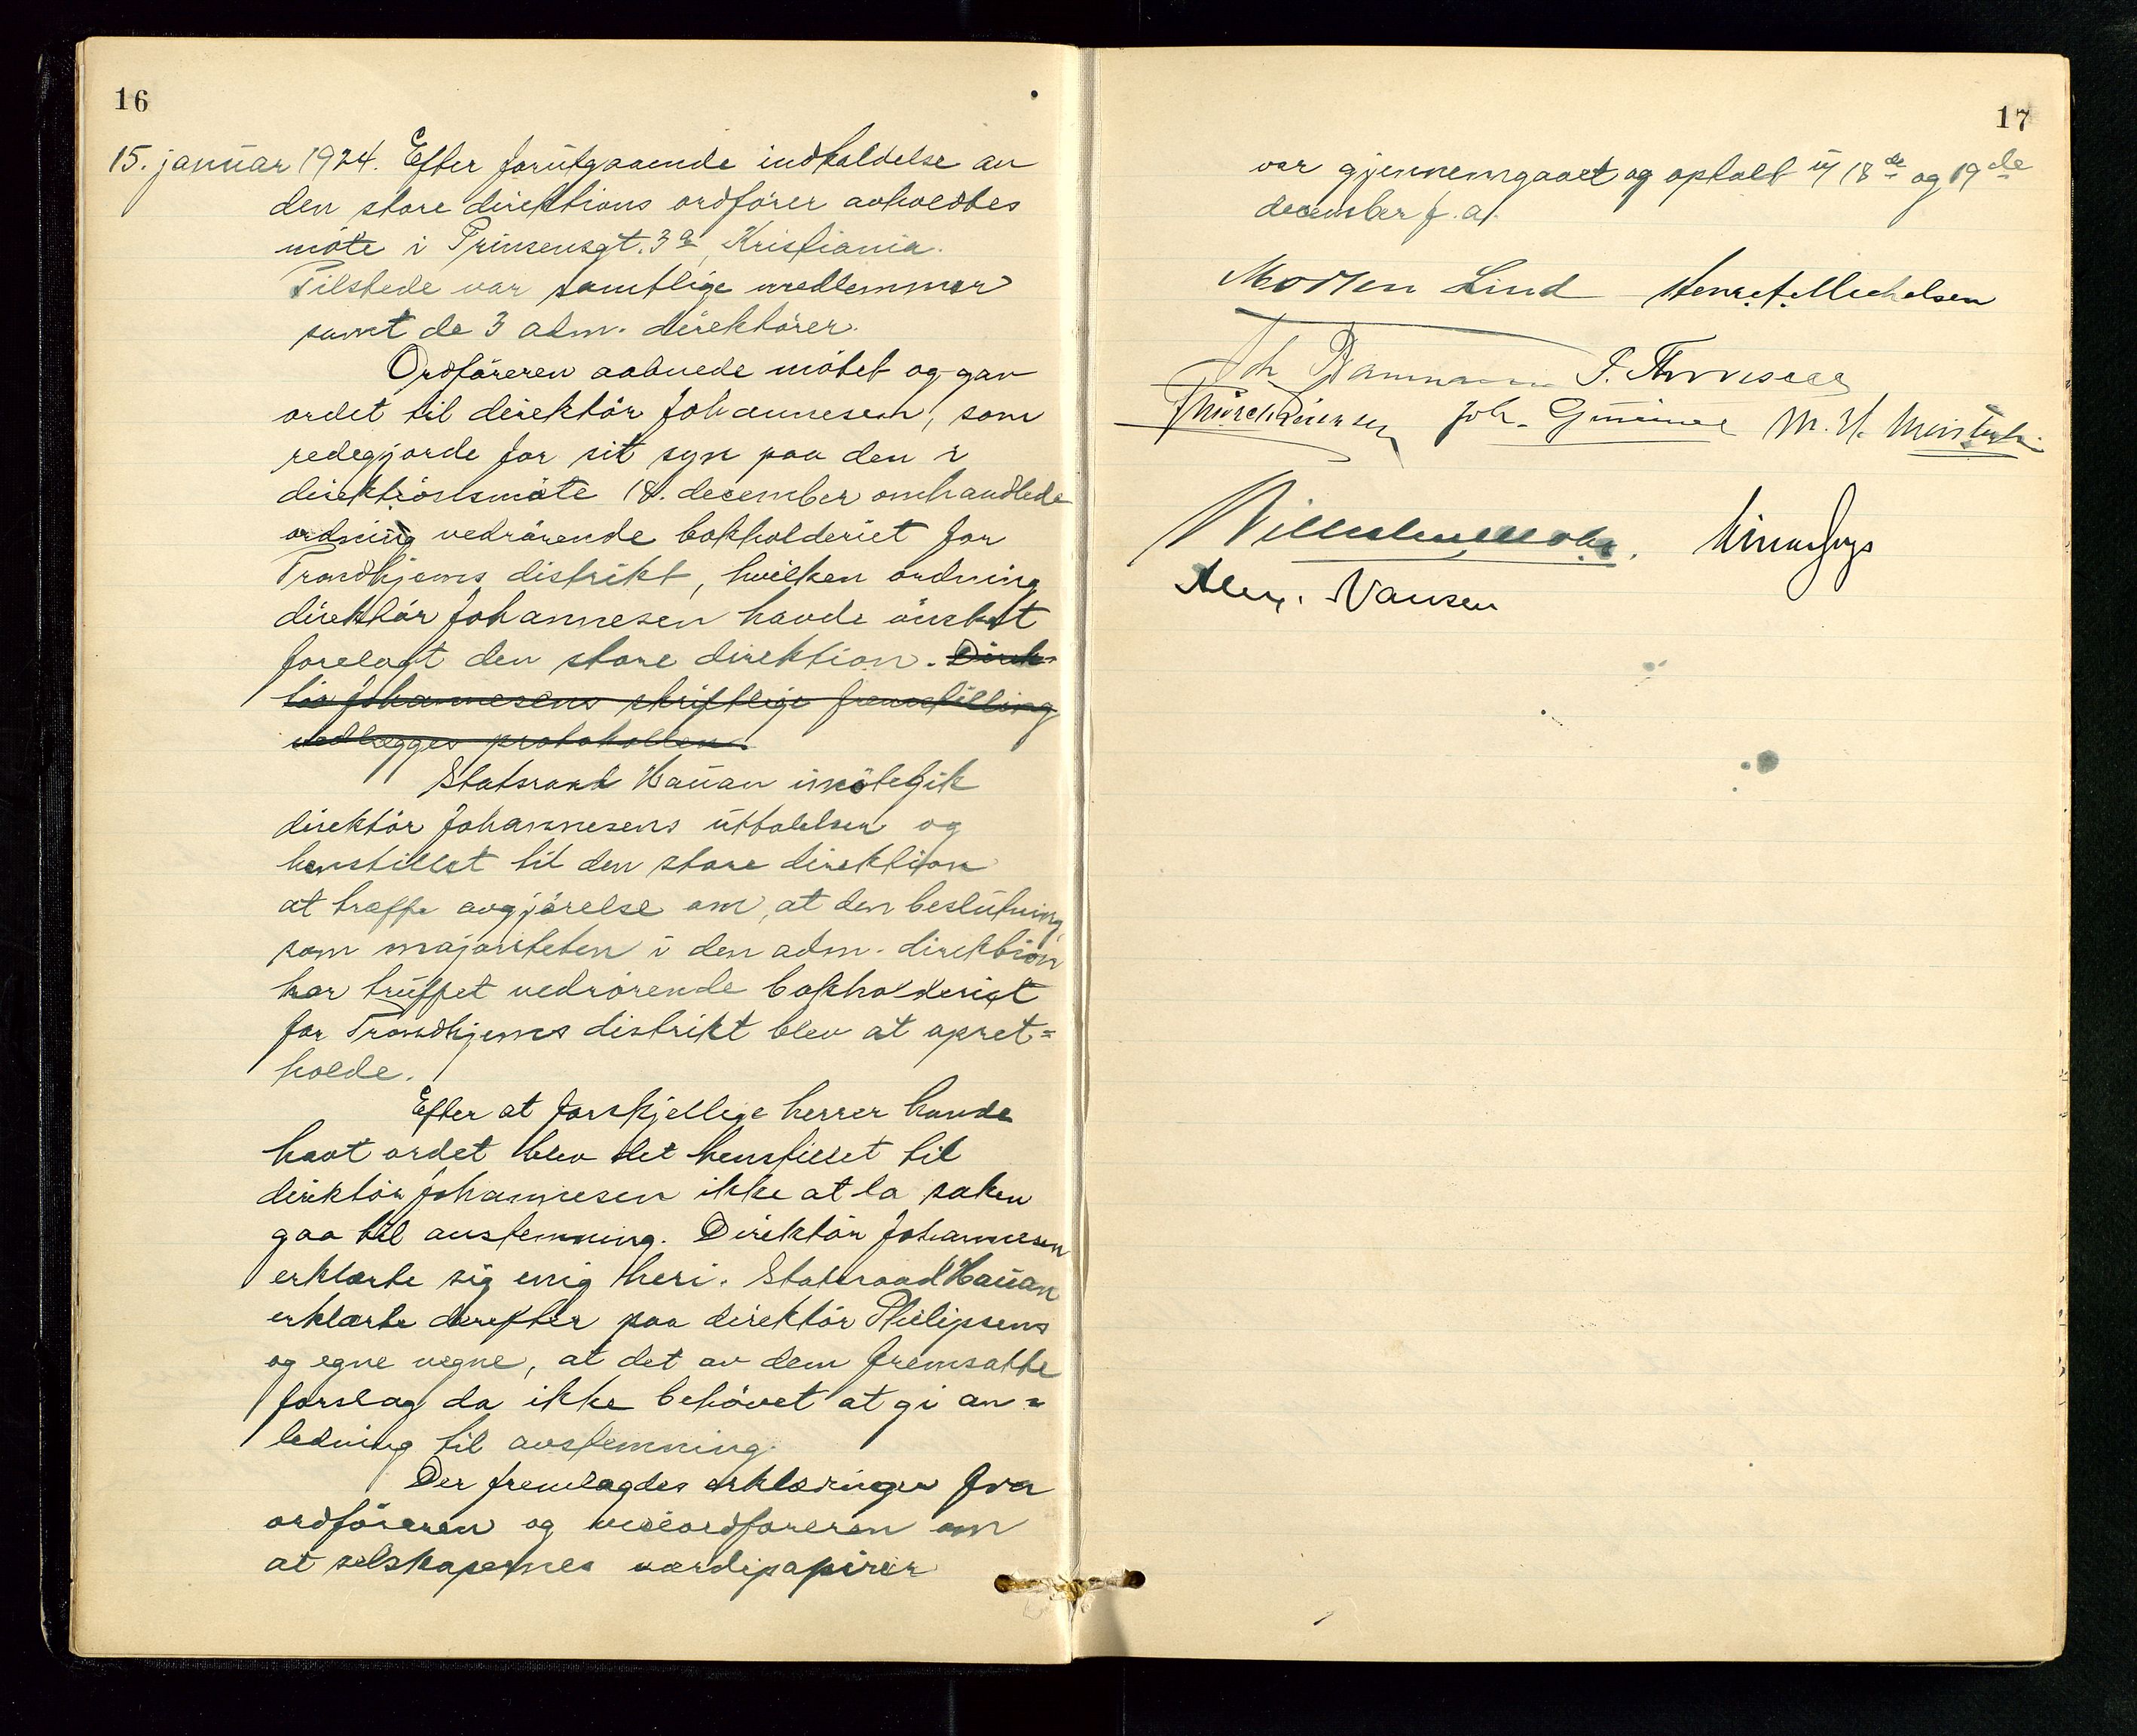 16
15. januar 1924. Efter forutgaaende indkaldelse av
den store direktions ordfører avholdtes
møte i Prinsensgt. 3a, Kristiania.
Tilstede var samtlige medlemmer
samt de 3 adm. direktører.
Ordføreren aabnede møtet og gav
ordet til direktør Johannesen, som
redegjorde for sit syn paa den i
direktionsmøte 18. december omhandlede
ordning vedrørende bokholderiet for
Trondhjems distrikt, hvilken ordning
direktør Johannesen havde ønsket
forelagt den store direktion. Direk-
tør Johannesens skriftlige fremstilling
vedlægges protokollen.
Statsraad Hauan imøtegik
direktør Johannesens uttalelser og
henstillet til den store direktion
at træffe avgjørelse om, at den beslutning,
som majoriteten i den adm. direktion
har truffet vedrørende bokholderiet
for Trondhjems distrikt blev at opret=
holde.
Efter at forskjellige herrer havde
havt ordet blev det henstillet til
direktør Johannesen ikke at la saken
gaa til avstemning. Direktør Johannesen
erklærte sig enig heri. Statsraad Hauan
erklærte derefter paa direktør Philipsens
og egne vegne, at det av dem fremsatte
forslag da ikke behøvet at gi an=
ledning til avstemning.
Der fremlagdes erklæringer fra
ordføreren og viceordføreren om
at selskapernes værdipapirer
17
var gjennemgaaet og optalt 18de og 19de
december f.a.
Morten Lind Henr. A. Michelsen
Joh.
Joh. M. H.
Nansen